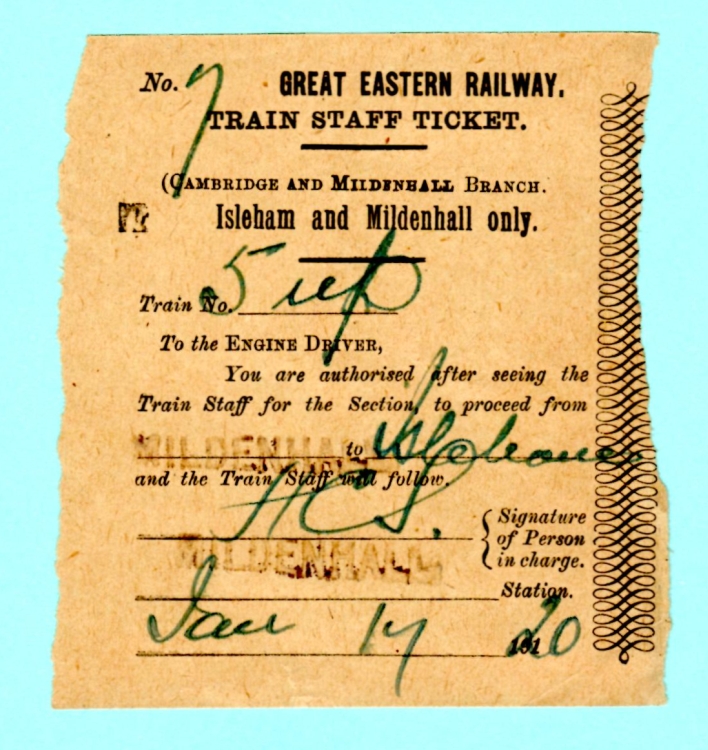 No. 7 GREAT EASTERN RAILWAY.
TRAIN STAFF TICKET.
(CAMBRIDGE AND MILDENHALL BRANCH.
Isleham and Mildenhall only.
Train No. 5 up
To the ENGINE DRIVER,
You are authorised after seeing the
Train Staff for the Section, to proceed from
MILDENHALL to Isleham
and the Train Staff will follow.
Signature
of Person
in charge.
MILDENHALL
Station.
Jan 17 20